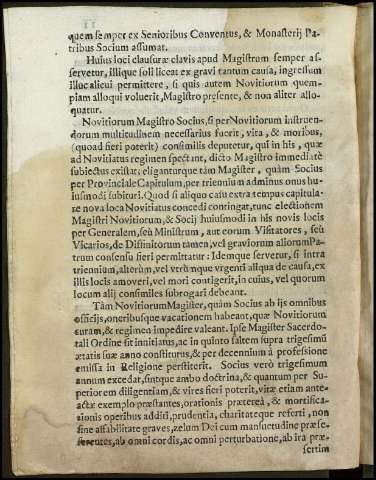 quem semper ex Senioribus Conventus, & Monasterij Pa-
tribus Socium assumat.
Huius loci clausuræ clavis apud Magistrum semper as-
servetur, illique soli liceat ex gravi tantum causa, ingressum
illuc alicui permittere, si quis autem Novitiorum quem-
piam alloqui voluerit, Magistro præsente, & non aliter allo-
quatur.
Novitiorum Magistro Socius, si per Novitiorum instruen-
dorum multitudinem necessarius fuerit, vita, & moribus,
(quoad fieri poterit) consimilis deputetur, qui in his, quæ
ad Novitiatus regimen spectant, dicto Magistro immediatè
subiectus existat; eliganturque tàm Magister, quàm Socius
per Provinciale Capitulum, per triennium ad minus onus hu-
iusmodi subituri. Quod si aliquo casu extra tempus capitula-
re nova loca Novitiatus concedi contingat, tunc electionem
Magistri Novitiorum, & Socij huiusmodi in his novis locis
per Generalem, seù Ministrum, aut eorum Visitatores, seù
Vicarios, de Diffinitorum tamen, vel graviorum aliorum Pa-
trum consensu fieri permittatur: Idemque servetur, si intra
triennium, alterum, vel utrumque urgenti aliqua de causa, ex
illis locis amoveri, vel mori contigerit, in cuius, vel quorum
locum alij consimiles subrogari debeant.
Tàm Novitiorum Magister, quàm Socius ab ijs omnibus
officijs, oneribusque vacationem habeant, quæ Novitiorum
curam, & regimen impedire valeant. Ipse Magister Sacerdo-
tali Ordine sit initiatus, ac in quinto saltem supra trigesimũ
ætatis suæ anno constitutus, & per decennium à professione
emissa in Religione perstiterit. Socius verò trigesimum
annum excedat, sintque ambo doctrina, & quantum per Su-
periorem diligentiam, & vires fieri poterit, vitæ etiam ante-
actæ exemplo præstantes, orationis prætereà, & mortifica-
tionis operibus addicti, prudentia, charitateque referti, non
sine affabilitate graves, zelum Dei cum mansuetudine præse-
ferentes, ab omni cordis, ac omni perturbatione, ab ira præ-
sertim